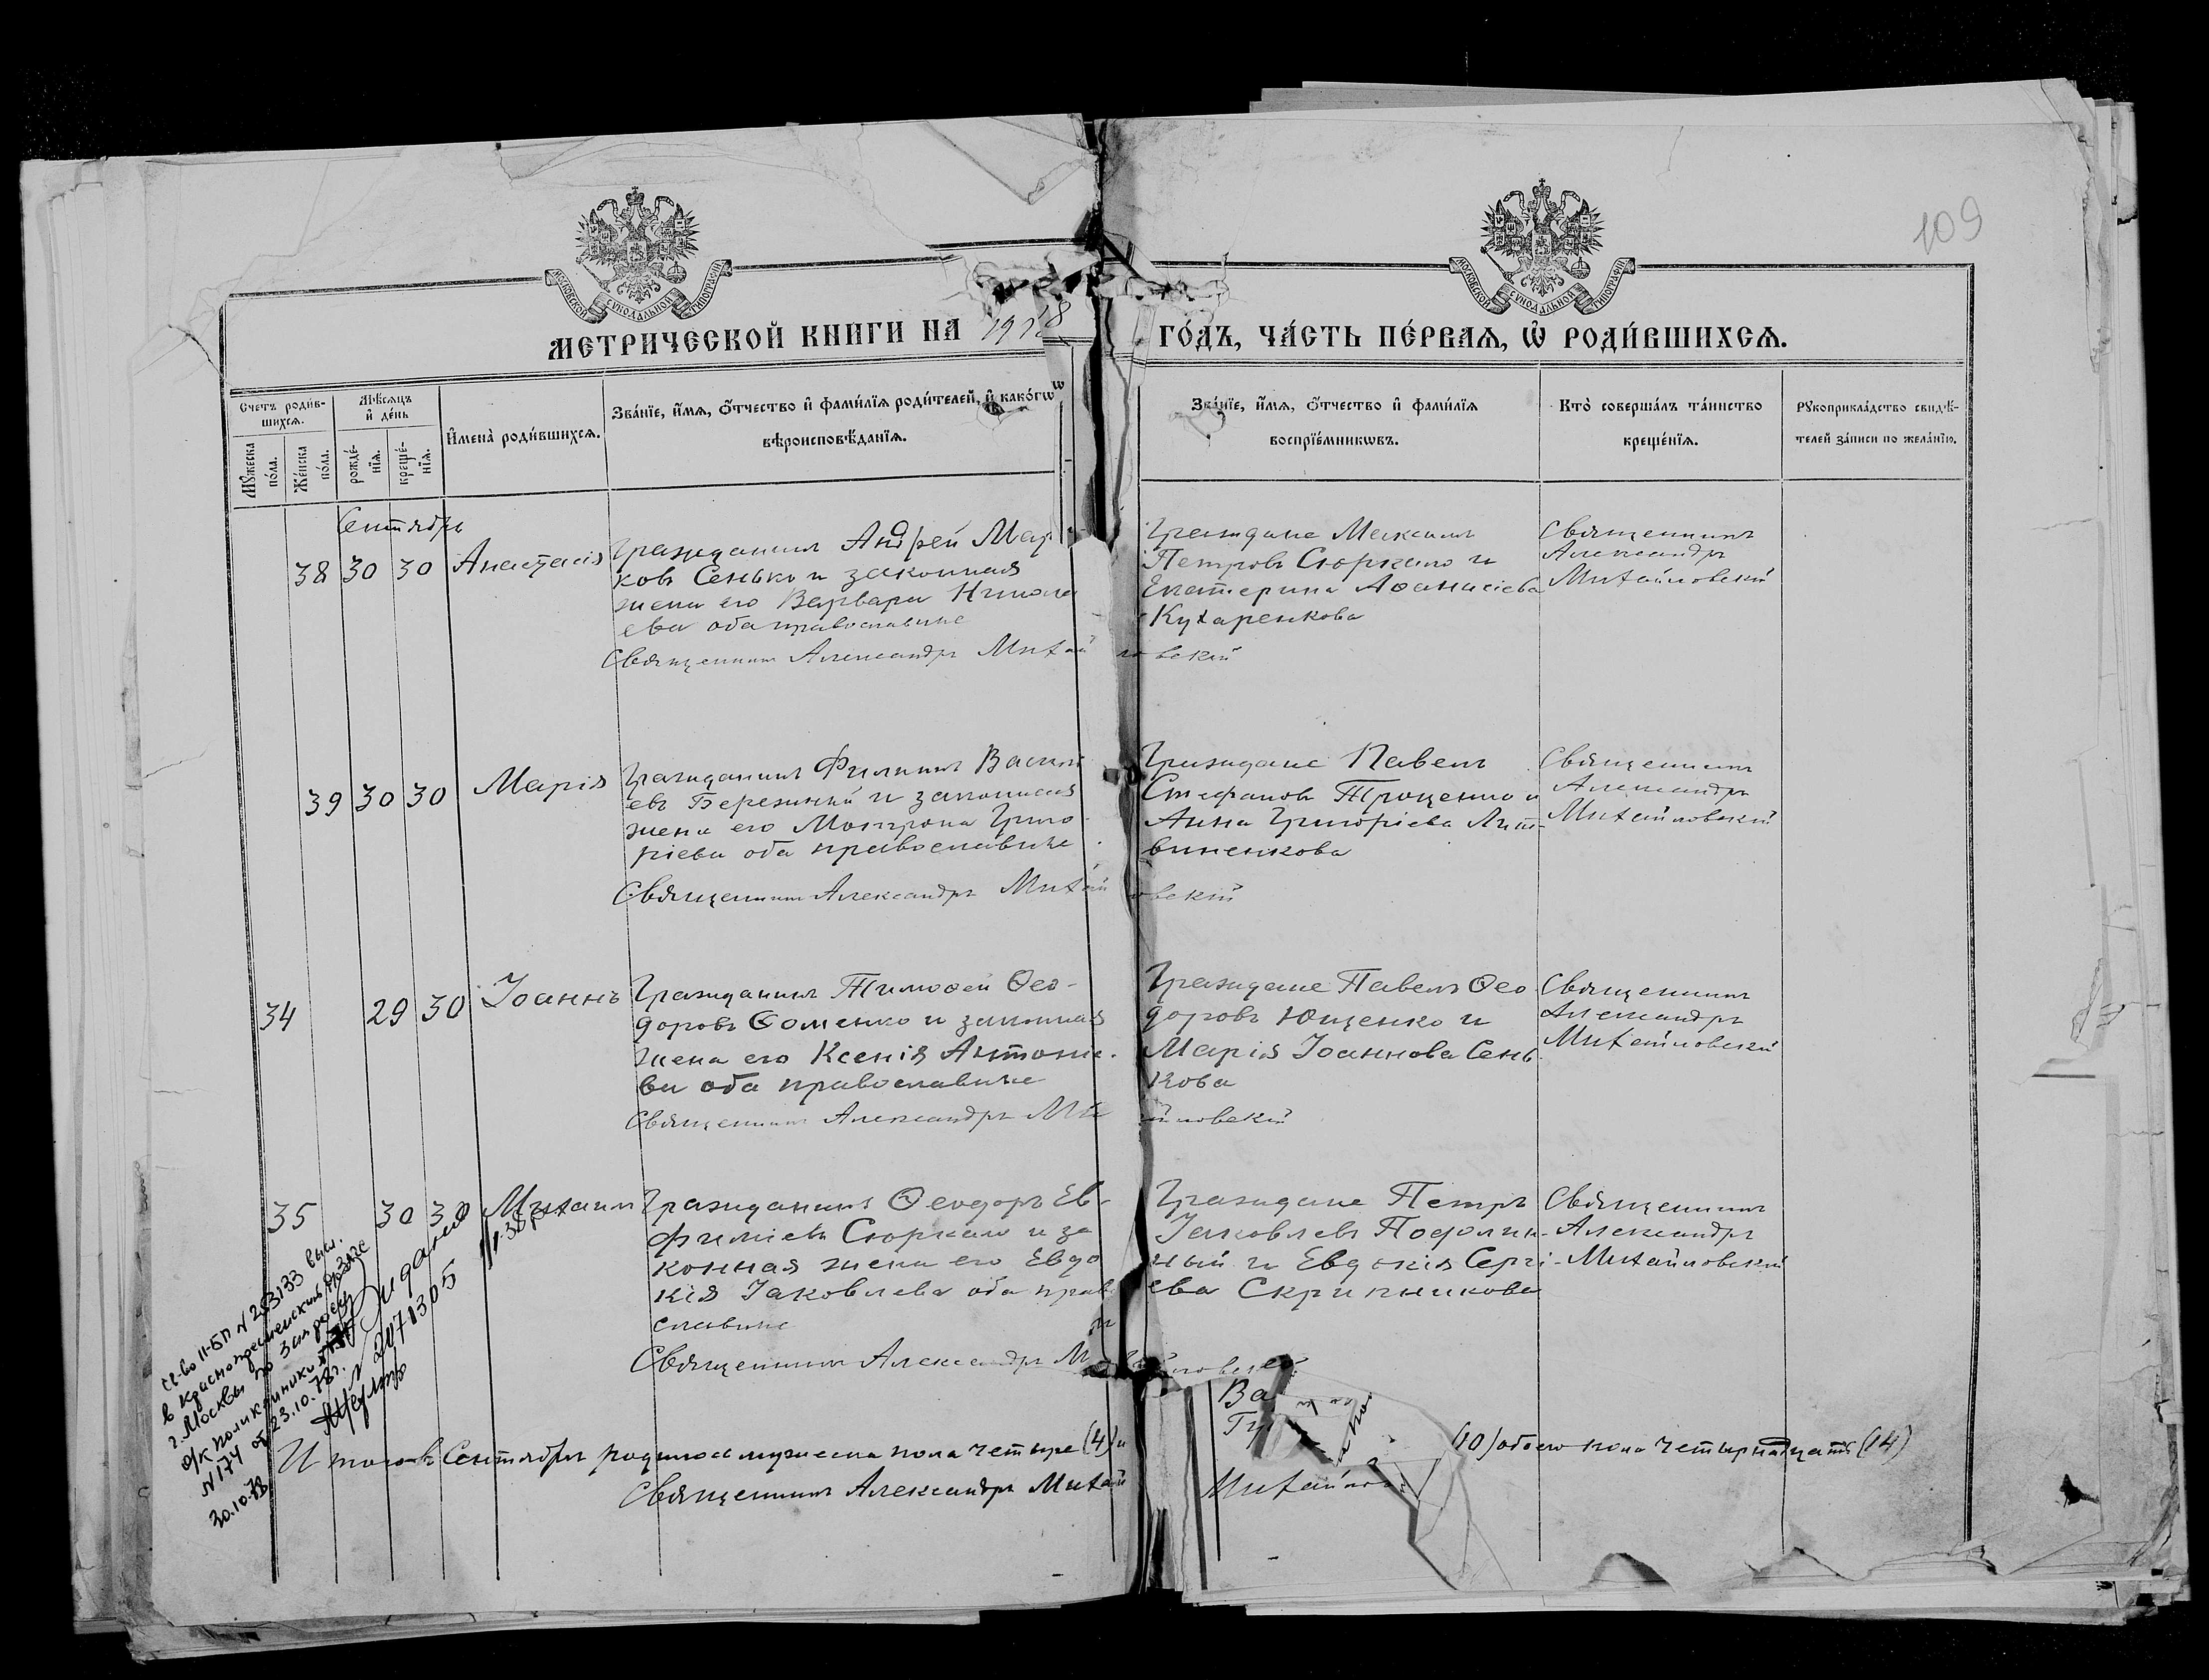 109
МОСКОВСКОЙ СѴНОДАЛЬНОЙ ТИПОГРАФІИ
МОСКОВСКОЙ СѴНОДАЛЬНОЙ ТИПОГРАФІИ
МЕТРИЧЕСКОЙ КНИГИ НА 1918
ГО́ДЪ, ЧА́СТЬ ПЕ́РВАѦ, Ѡ҆ РОДИ́ВШИХСѦ.
Счетъ роди́в-
шихсѧ.
Мѣ́сѧцъ
и҆ де́нь
Мꙋ́жеска
по́ла.
Же́нска
по́ла.
рожде́-
нїѧ.
креще́-
нїѧ.
И҆мена̀ роди́вшихсѧ.
Зва́нїе, и҆́мѧ, ѻ҆́тчество и҆ фами́лїѧ роди́телей, и҆ како́гѡ
вѣроисповѣ́данїѧ.
Зва́нїе, и҆́мѧ, ѻ҆́тчество и҆ фами́лїѧ
воспрїе́мникѡвъ.
Кто̀ соверша́лъ та́инство
креще́нїѧ.
Рꙋкоприкла́дство свидѣ́-
телей за́писи по жела́нїю.
Сентябрь
38 30 30 Анастасія
Гражданинъ Андрей Мар
ковъ Сенько и законная
жена его Варвара Никола
ева оба православные
Священникъ Александръ Михайловскій
Граждане Максимъ
Петровъ Сюркало и
Екатерина Аѳанасіева
Кухаренкова
Священникъ
Александръ
Михайловскій
39 30 30 Марія
Гражданинъ Филиппъ Васильевъ
евъ Березкий и законная
жена его Матрона Григо
ріева оба православные
Священникъ Александръ Михайловскій
Граждане Павелъ
Стефановъ Троценко и
Анна Григоріева Лит-
виненкова
Священникъ
Александръ
Михайловскій
34 29 30 Іоаннъ
Гражданинъ Тимоѳей Ѳео-
доровъ Ѳоменко и законная
жена его Ксенія Антоніе-
ва оба православные
Священникъ Александръ Михайловскій
Граждане Павелъ Ѳео
доровъ Ющенко и
Марія Іоаннова Сень
кова
Священникъ
Александръ
Михайловскій
35 30 30 Михаилъ
Гражданинъ Ѳеодоръ Ев-
фиміевъ Сюркало и за
конная жена его Евдо
кія Іаковлева оба право
славные
Священникъ Александръ Михайловскій
Граждане Петръ
Іаковлевъ Подолин-
ный и Евдокія Сергі-
ева Скрипникова
Священникъ
Александръ
Михайловскій
Св-во II-БП N 283133 выд.
в Краснопресненском ЗАГСе
г. Москвы по
О/К поликлиники
N 174 от 23.10.78г.
30.10.78
N 2071305
Итого въ Сентябрѣ родилось мужеска пола четыре (4) и
(10) обоего пола четырнадцать (14)
Священникъ Александръ Михай
Михайлов